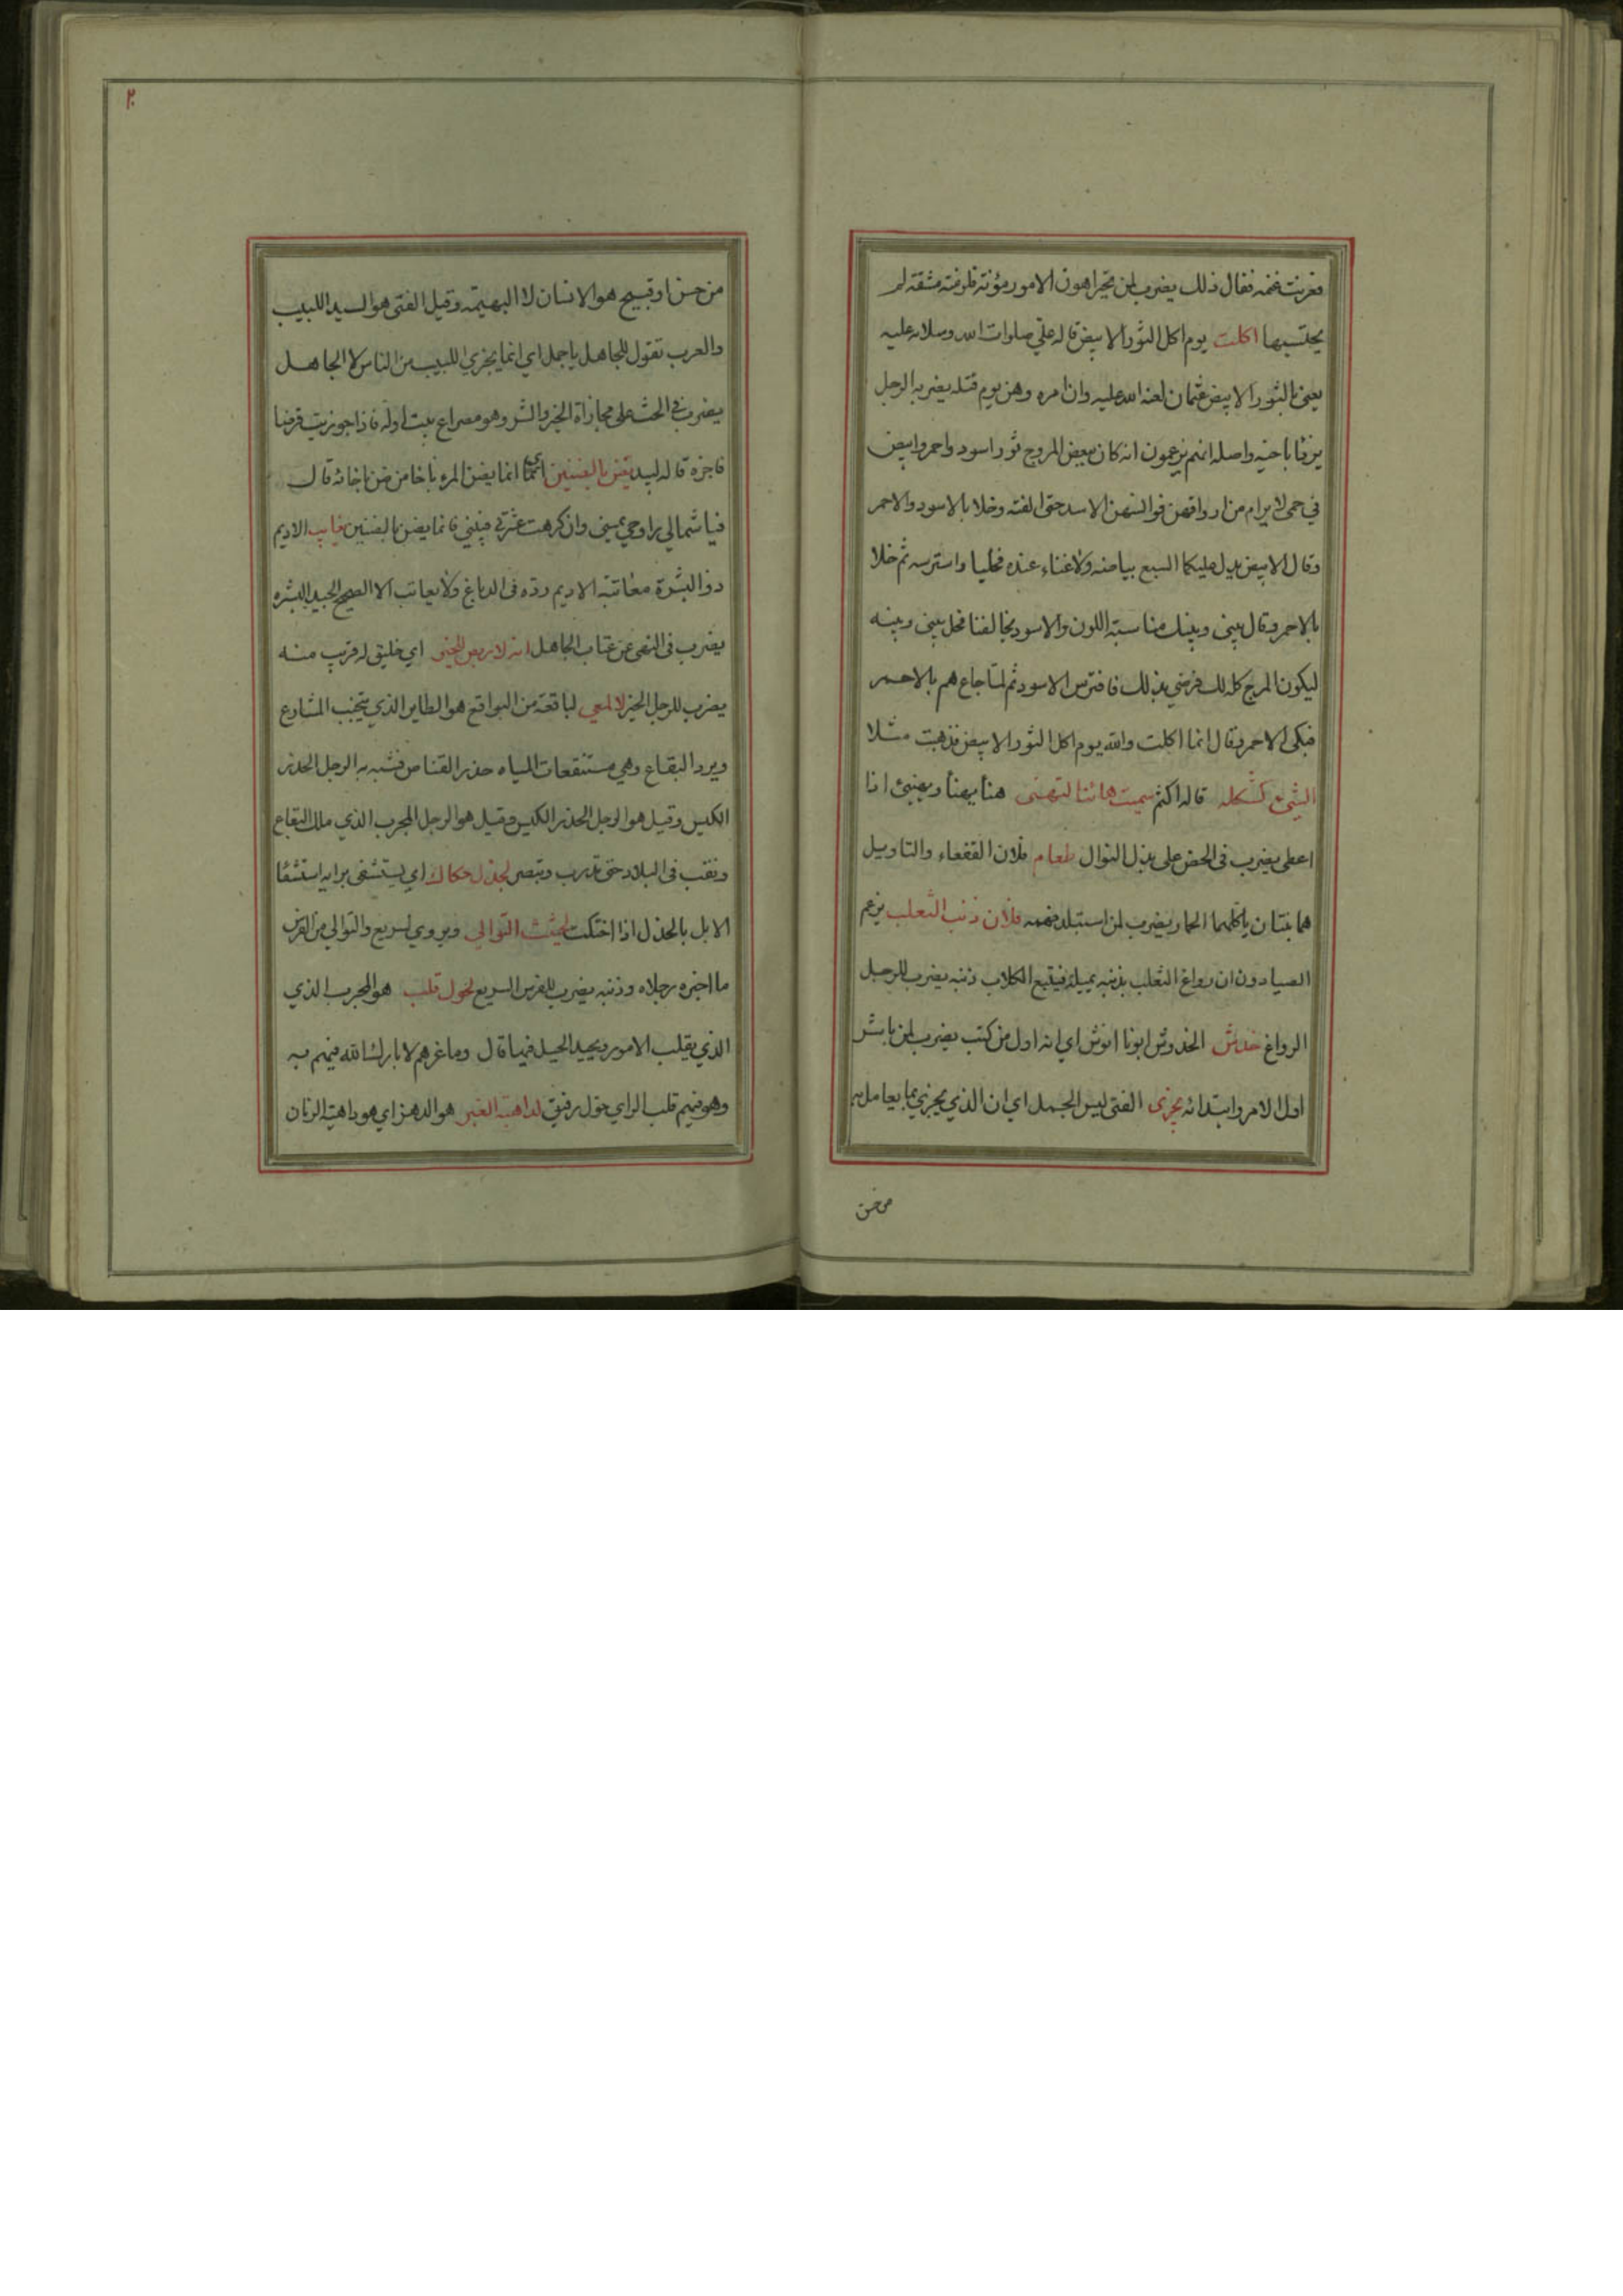 فعزبت غنمه فقال ذلك يضرب لمن تخير اهون الامور مؤنة فلزمته مشقة لم
يحتسبها اكلت يوم اكل الثور الابيض قاله علي صلوات الله وسلامه عليه
يعني بالثور الابيض عثمان لعنة الله عليه وان امره وهن يوم قتله يضربه الرجل
يرزئا باخيه واصله انهم يزعمون انه كان ببعض المروج ثور اسود واحمر وابيض
في حمى لا يرام من ارواقهن فوالسهن الاسد حتى الفته وخلا بالاسود والاحمر
وقال الابيض يدل عليكما السبع بياضه ولا غناء عنده فخليا وافترسه ثم خلا
بالاحمر وقال بيني وبينك مناسبة اللون والاسود يخالفنا فخل بيني وبينه
ليكون المرج كله لك فرضي بذلك فافترس الاسود ثم لما جاع هم بالاحمر
فبكى الاحمر وقال انما اكلت والله يوم اكل الثور الابيض فذهبت مثلا
الشيء كشكله قاله اكثم سميت هانئا لتهنى هنا يهنأ ويهنئ اذا
اعطى يضرب في الحض على بذل النوال طعام فلان القفعاء والتاويل
هما نبتان ياكلهما الحمار يضرب لمن استبلد فهمه فلان ذنب الثعلب يزعم
الصيادون ان رواغ الثعلب بذنبه يميله فيتبع الكلاب ذنبه يضرب للرجل
الرواغ خدش الخدوش ابونا انوش اي انه اول من كتب يضرب لمن باشر
اول الامر وابتدائه يجزى الفتى ليس الجمل اي ان الذي يجزي بما يعامل به
من حسن
٢٠
من حسن او قبيح هو الانسان لا البهيمة وقيل الفتى هو السيد اللبيب
والعرب تقول للجاهل يا جمل اي انما يجزي اللبيب من الناس لا الجاهل
يضرب في الحث على مجازاة الخير والشر وهو مصراع بيت اوله فاذا جوزيت قرضا
فاجزه قاله لبيد يضن بالضنين اي انما يضن المرء باخا من ضن باخائه قال
فيا شمالي راوحي يميني وان كرهت عشرتي فبيني فانما يضن بالضنين يعاتب الاديم
ذو البشرة معاتبة الاديم رده في الدباغ ولا يعاتب الا الصحيح الجيد البشره
يضرب في النهى عن عتاب الجاهل انه لاريض للخير اي خليق له قريب منه
يضرب للرجل الخير لالمعي لباقعة من البواقع هو الطاير الذي يتجنب المشارع
ويرد البقاع وهي مستنقعات المياه حذر القناص فشبه به الرجل الحذر
الكيس وقيل هو الرجل الحذر الكيس وقيل هو الرجل المجرب الذي ملك البقاع
ونقب في البلاد حتى تدرب وتبصر لجذل حكاك اي يستشفى برايه استشفا
الابل بالجذل اذا احتكت لحثيث التوالي ويروي لسريع والتوالي من الفرس
ما اخره رجلاه وذنبه يضرب للفرس السريع لحول قلب هو المجرب الذي
الذي يقلب الامور ويجيد الحيل فيما قال وما غرهم لا بارك الله فيهم به
وهو فيهم قلب الراي حول رفيق لداهية الغبر هو الدهر اي هو داهية الزمان